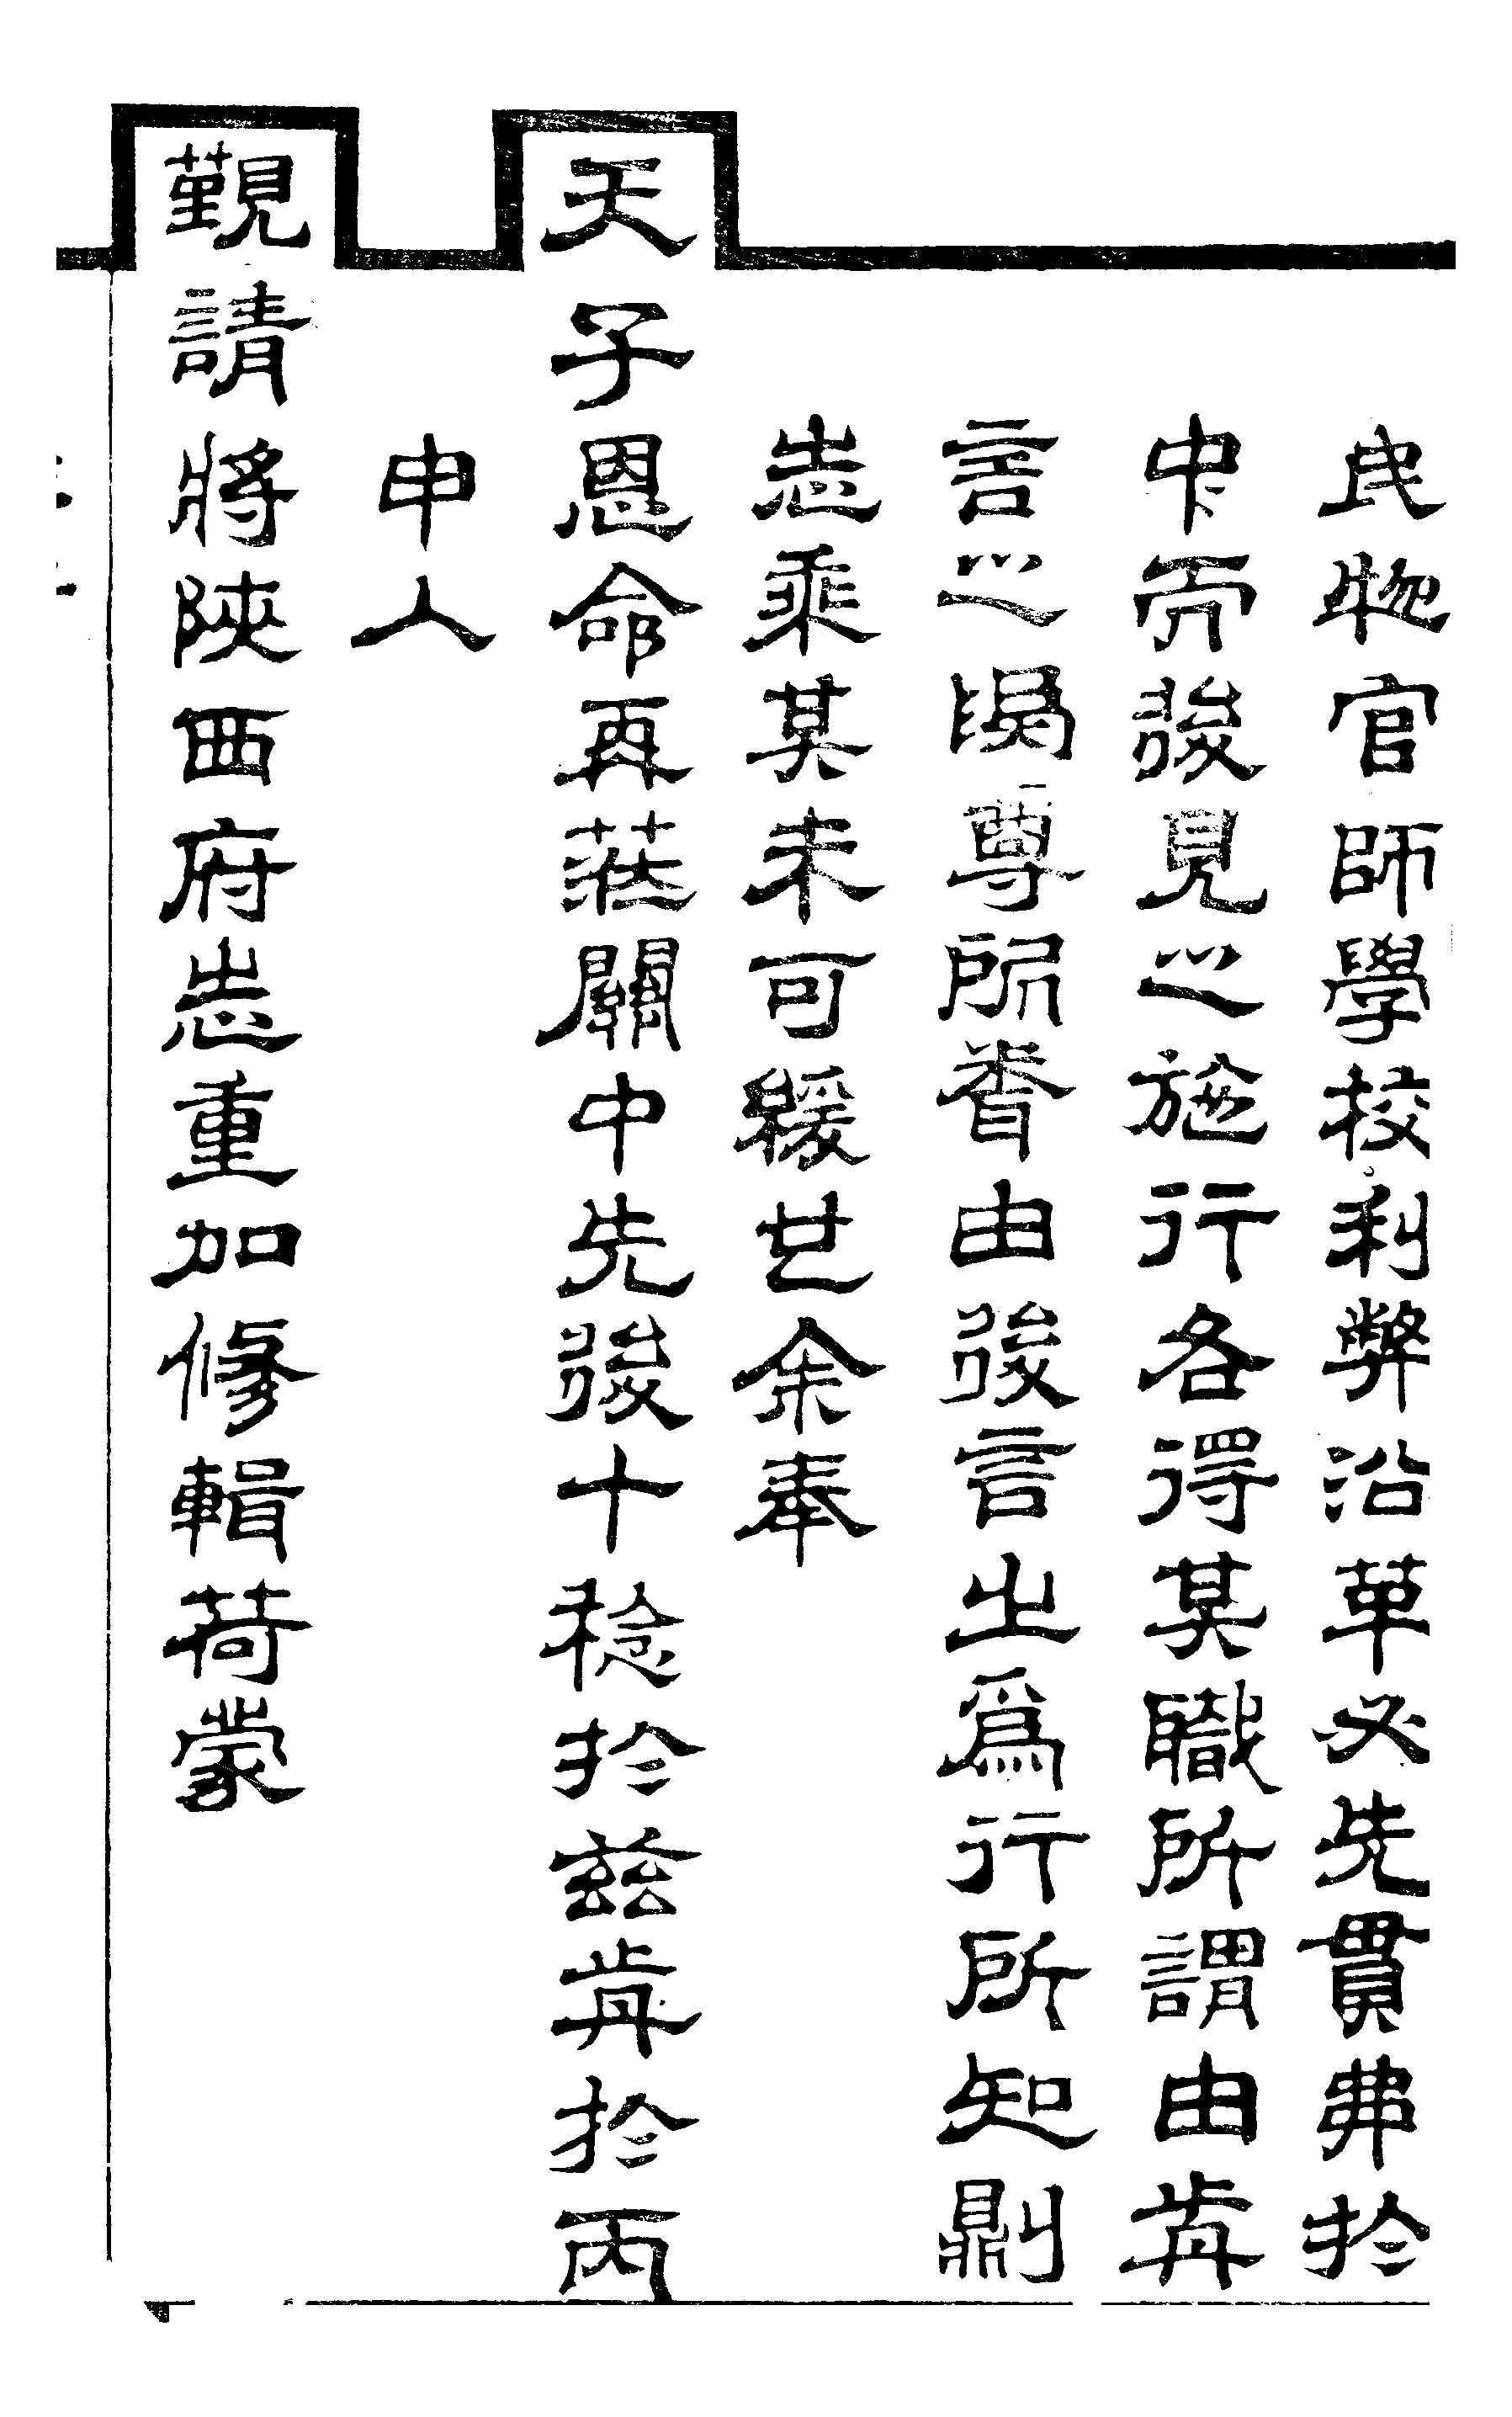 民物官師學校利弊沿革必先貫弗於
中而後見之施行各得其職所謂由前
言之偈尊所聞由後言之爲行所知則
志乘其未可緩也余奉
天子恩命再莅關中先後十稔於茲前於丙
申入
覲請將陝西府志重加修輯荷蒙